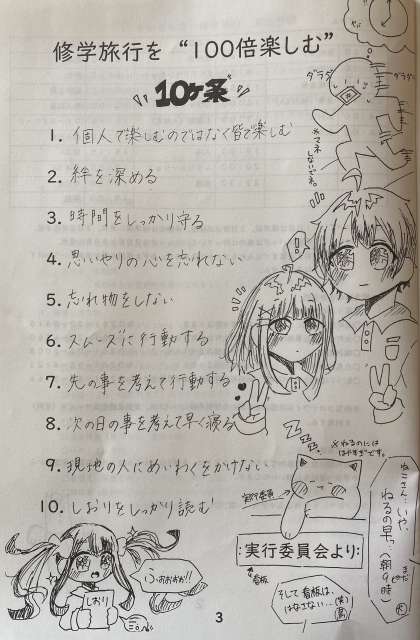 修学旅行を “100倍楽しむ”
10ヶ条
ダラダラ
ダラダラ
※マネしないでネ。
1. 個人で楽しむのではなく皆で楽しむ
2. 絆を深める
3. 時間をしっかり守る
4. 思いやりの心を忘れない
5. 忘れ物をしない
6. スムーズに行動する
7. 先の事を考えて行動する
8. 次の日の事を考えて早く寝る
9. 現地の人にめいわくをかけない
10. しおりをしっかり読む
!
Z Z Z Z
※ねるのには
はやすぎです。
実行委員
ねこさん…いや、
ねるの早っ(朝9時)
:実行委員会より:
看板
そして看板は、
はなさない…(笑)
しおり
ふおおおお!!
3